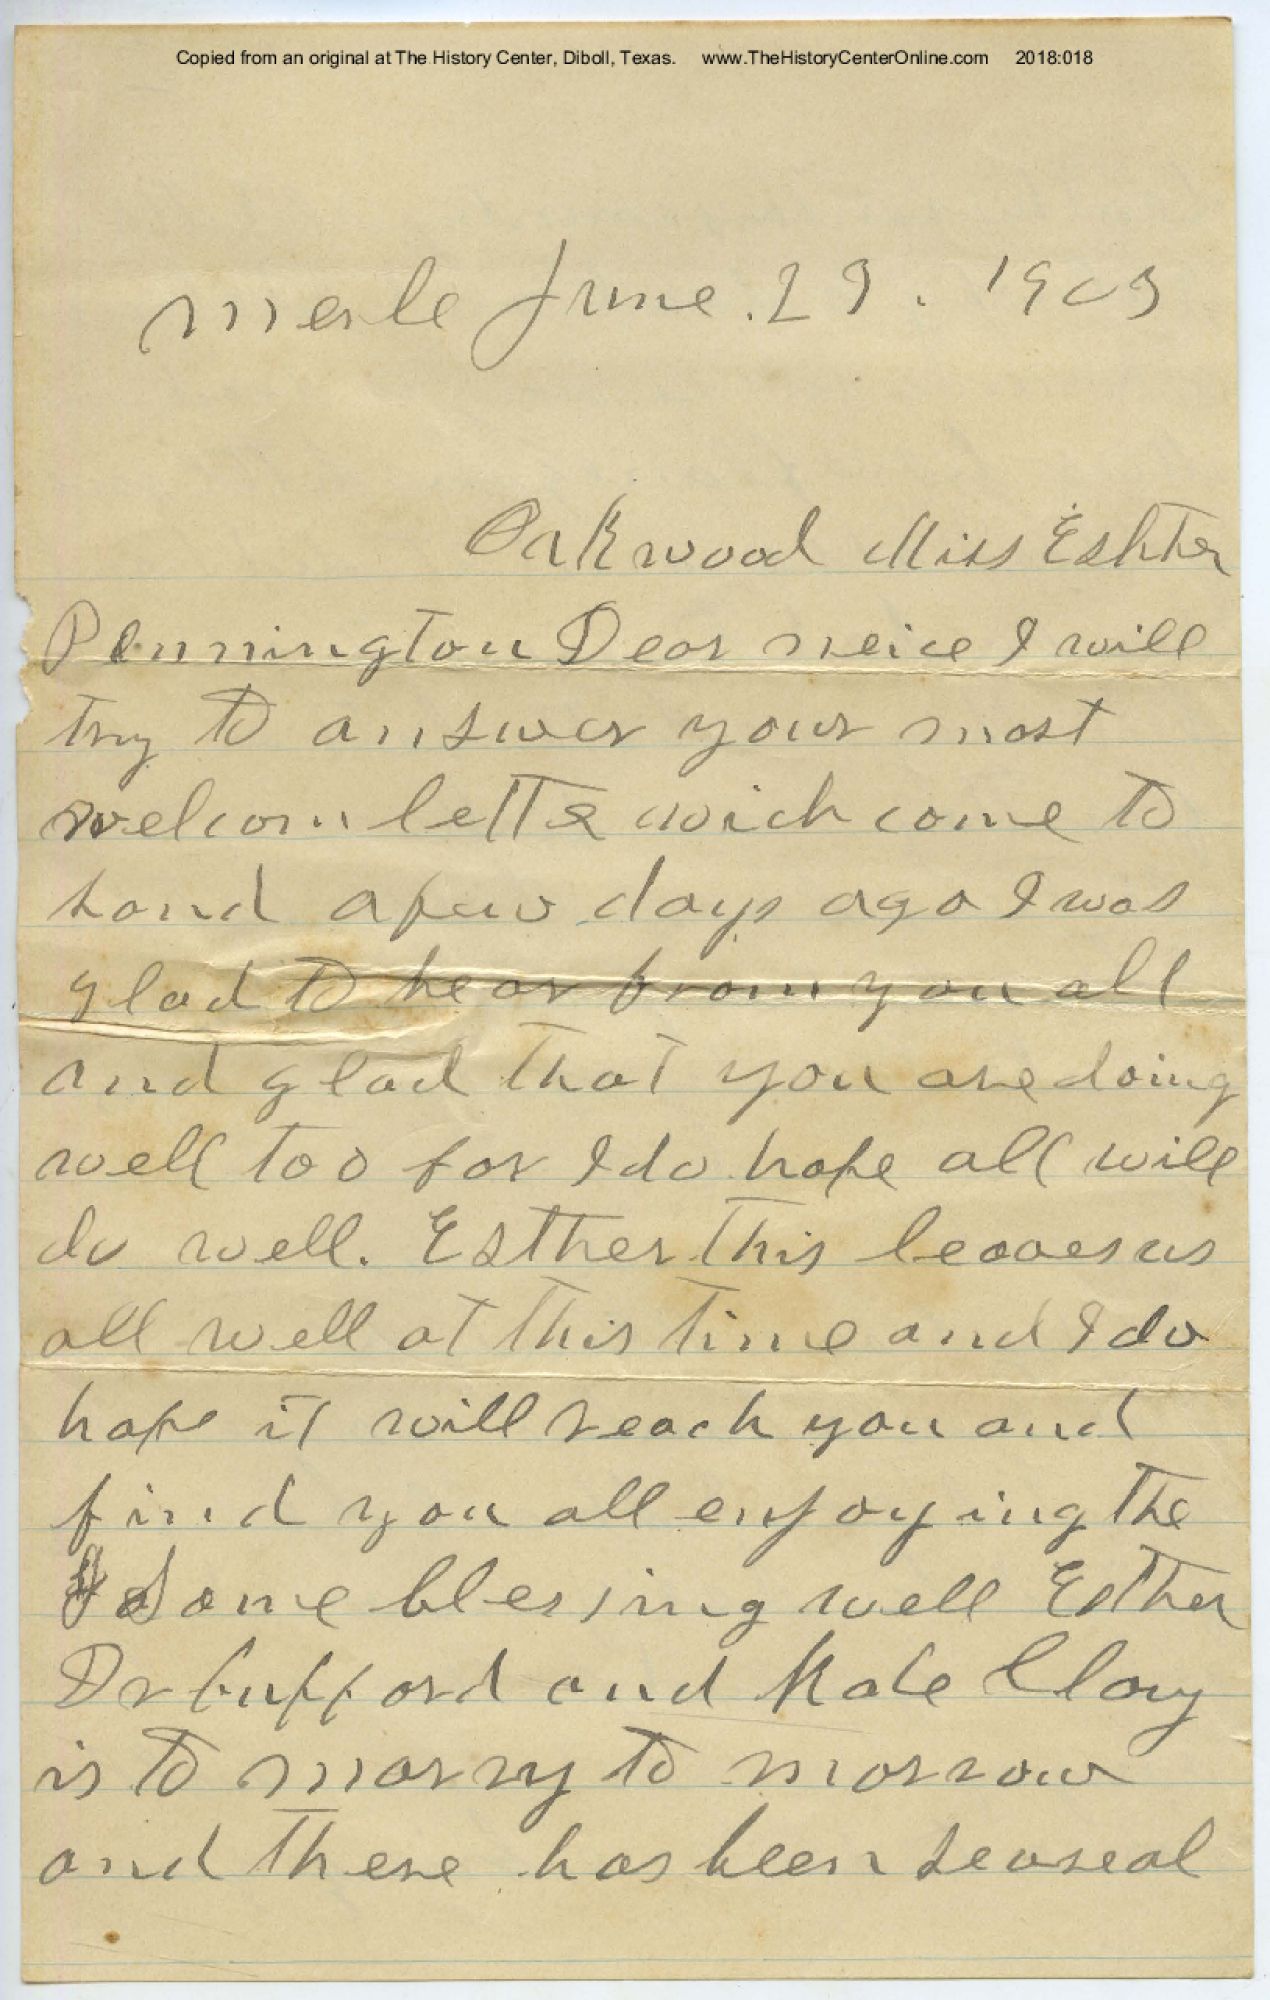 Copied from an original at The History Center, Diboll, Texas. www.TheHistoryCenterOnline.com 2018:018
Merle June. 29. 1903
Oakwood Miss Eshter
Pennington Dear neice I will
try to answer your most
welcom letter wich come to
hand a few days ago I was
glad to hear from you all
and glad that you are doing
well too for I do hope all will
do well. Esther this leaves us
all well at this time and I do
hope it will reach you and
find you all enjoying the
Same blessing well Esther
Dr bufford and Kate Clary
is to marry to morrow
and there has been seaveal